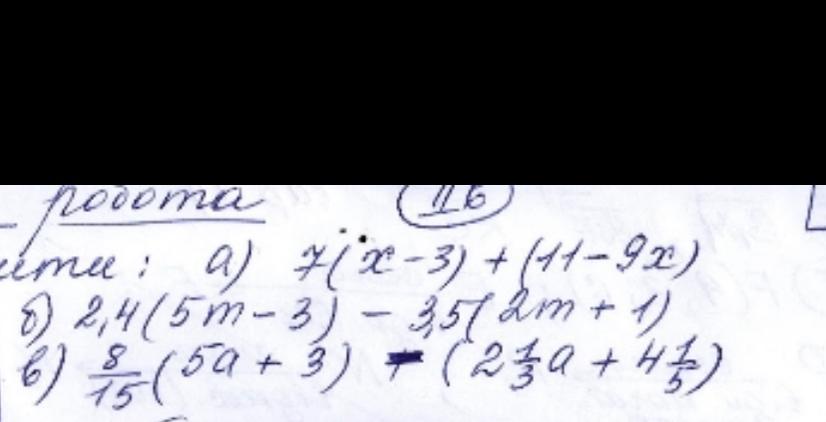 робота 116
а) 7(x-3) + (11-9x)
б) 2,4(5m-3) - 3,5(2m+1)
в) 8/15(5a+3) - (2 1/3 a + 4 1/5)